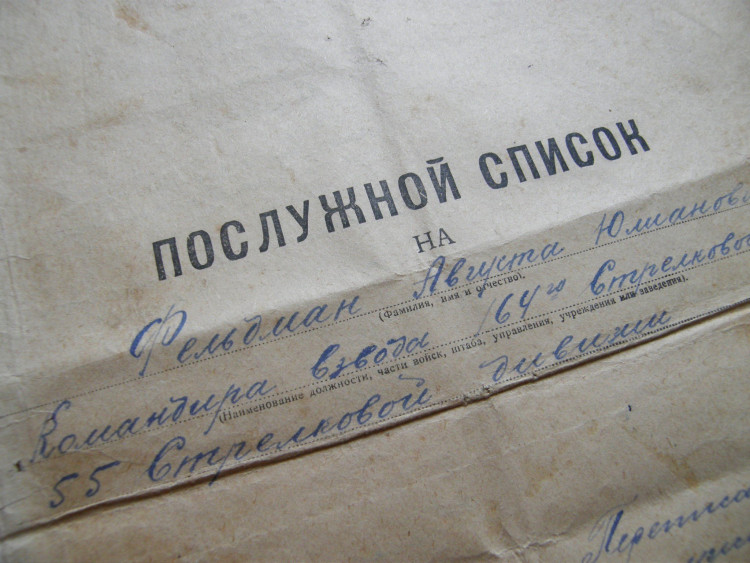 ПОСЛУЖНОЙ СПИСОК
НА
Фельдман Августа Юлианови
(Фамилия, имя и отчество).
Командира взвода 164го Стрелковог
(Наименование должности, части войск, штаба, управления, учреждения или заведения).
55 Стрелковой дивизии